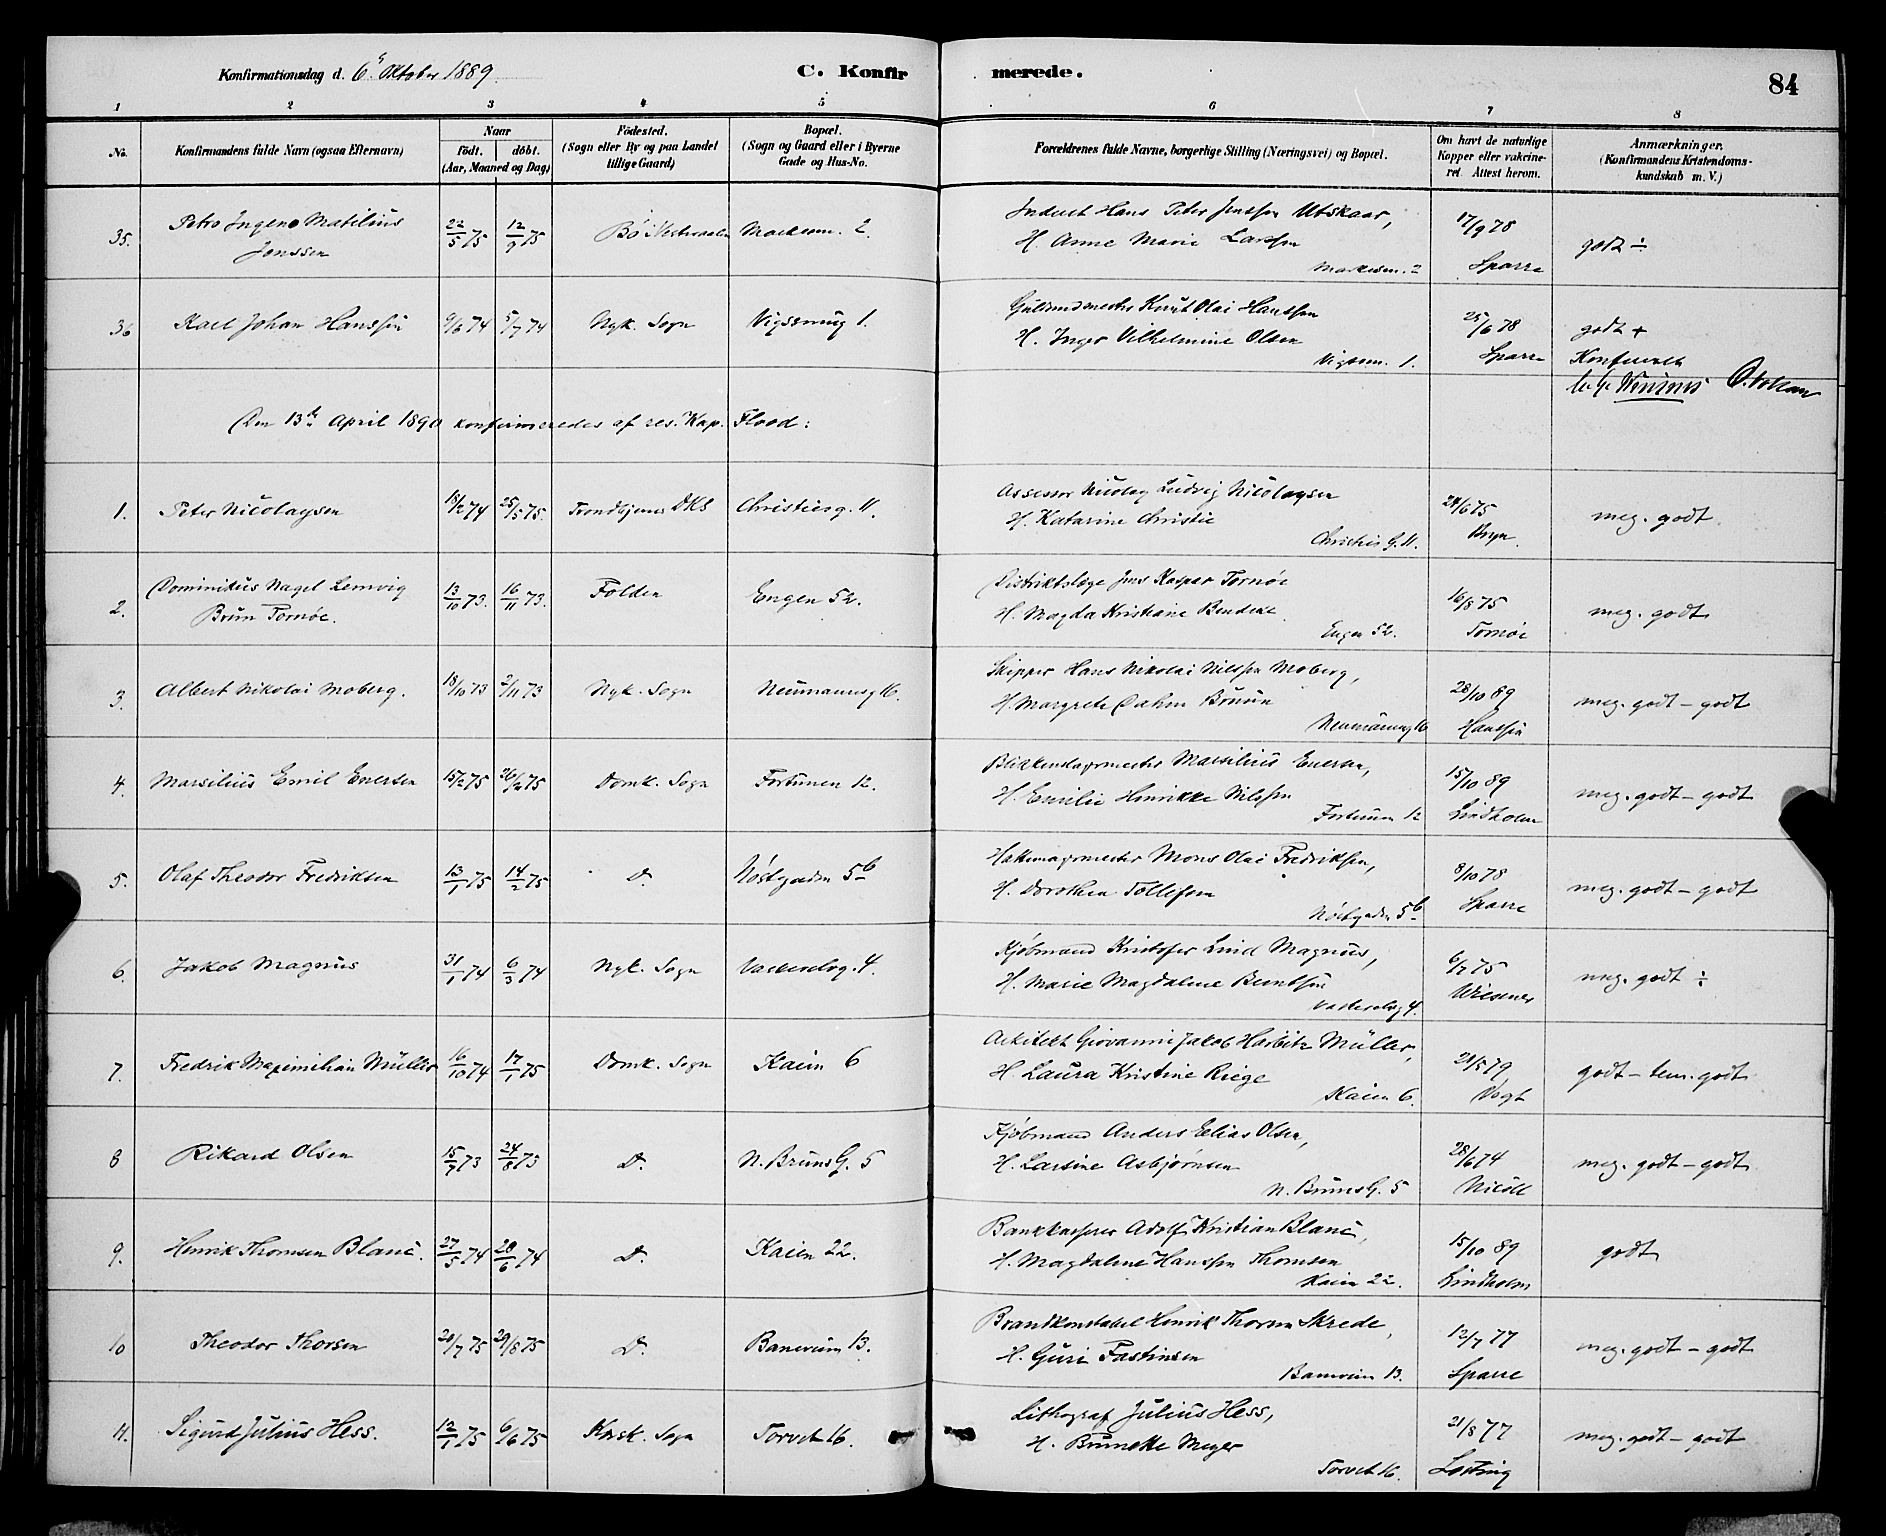 Konfirmationsdag d. 6te Oktober 1889. C. Konfirmerede. 84
1 2 3 4 5 6 7 8
No.
Konfirmandens fulde Navn (ogsaa Efternavn)
Naar
födt. döbt.
(Aar, Maaned og Dag)
Födested.
(Sogn eller By og paa Landet
tillige Gaard)
Bopæl.
(Sogn og Gaard eller i Byerne
Gade og Hus-No.
Forældrenes fulde Navne, borgerlige Stilling (Næringsvei) og Bopæl.
Om havt de naturlige
Kopper eller vakcine-
ret Attest herom.
Anmærkninger.
(Konfirmandens Kristendoms-
kundskab m. V.)
35. Petro Ingen Matilius
Jenssen
22/5 75 12/9 75 Bö i Vesteraalen 2.
Hans Peter Jenssen Utskaar,
H. Anne Marie Larssen
2
17/9 78
Sparre
godt ÷
36 Karl Johan Hanssen 9/6 74 5/7 74 Nyk. Sogn 1.
Knut Olai Hanssen
H. Inger Vilhelmine Olsen
1.
25/6 78
Sparre
godt +
Den 13de April 1890 konfirmeredes af res. Kap. Flood:
1. Peter Nicolaysen 18/2 74 25/5 75. Trondhjems DKS Christiesg. 11.
Assessor Nicolay Ludvig Nicolaysen
H. Katarine Christie
Christies G. 11.
24/6 75
meg. godt.
2. Dominikus Nagel Lemvig
Brun Tornöe.
13/10 73. 16/11 73. Folden Engen 52.
Distriktslæge Jens Kaspar Tornöe
H. Magda Kristiane Bendeke
Engen 52.
16/8 75
Tornöe
meg. godt
3. Albert Nikolai Moberg. 18/10 73 2/11 73 Nyk. Sogn Neumannsg 16.
Skipper Hans Nikolai Nilssen Moberg,
H. Margrete Dahm Bruun
Neumannsg 16
28/10 89
Hanssen
meg. godt - godt
4. Marsilius Emil Enersen 15/2 75 26/2 75 Domk. Sogn Fortunen 12.
Marsilius Enersen,
H. Emilie Henrikke Nilssen
Fortunen 12
15/10 89
Lindholm
meg. godt - godt
5. Olaf Theodor Fredriksen 13/1 75 14/2 75 D. Nöstgaden 5b
Hattemagermester Mons Olai Fredriksen,
H. Dorothea Tollefsen
Nöstgaden 5b
8/10 78
Sparre
meg. godt - godt
6. Jakob Magnus 31/1 74 6/3 74 Nyk. Sogn Vaskerelvg. 4.
Kjöbmand Kristofer Lund Magnus,
H. Marie Magdalene Berntsen
Vaskerelvg 4.
6/7 75
Wiesener
meg. godt ÷
7. Fredrik Maximilian Müller 16/10 74 17/1 75 Domk. Sogn Kaien 6
Arkitekt Giovanni Jakob Harbitz Müller,
H. Laura Kristine Riege
Kaien 6.
21/5 79
Vogt
godt - tem. godt
8 Rikard Olsen 15/7 73 24/8 73 D. N. Bruns G. 5
Kjöbmand Anders Elias Olsen,
H. Larsine Asbjørnsen
N. Bruns G. 5
28/6 74
Nicoll
meg. godt - godt
9. Henrik Thomsen Blanc. 27/5 74 28/6 74 D. Kaien 22.
Bankkasserer Adolf Kristian Blanc,
H. Magdalene Hanssen Thomsen
Kaien 22.
15/10 89
Lindholm
godt
10 Theodor Thorsen 20/7 75 29/8 75 D. Baneveien 13.
Brandkonstabel Henrik Thorsen Skrede,
H. Guri Fastinsen
Baneveien 13.
12/7 77
Sparre
meg. godt - godt
11. Sigurd Julius Hess. 12/1 75 6/6 75 Korsk. Sogn Torvet 16.
Lithograf Julius Hess,
H. Bruneke Meyer
Torvet 16.
21/8 77
Losting
meg. godt - godt